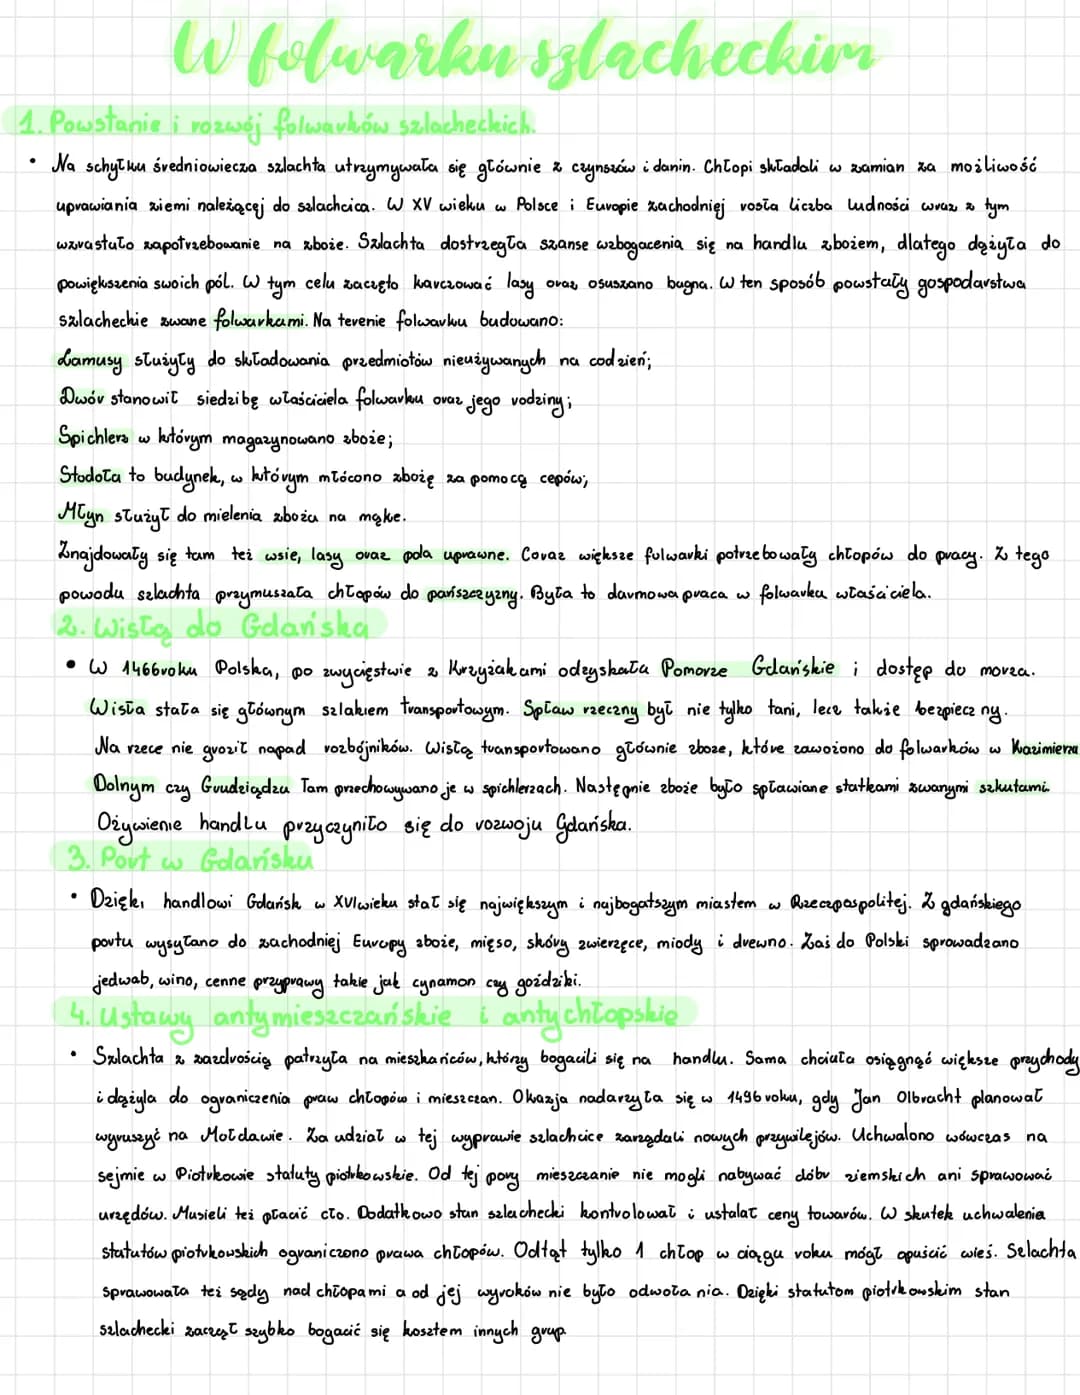 W folwarku szlacheckim
1. Powstanie i rozwój folwarków szlacheckich.
• Na schyłku średniowiecza szlachta utrzymywała się głównie z czynszów i danin. Chłopi składali w zamian za możliwość
uprawiania ziemi należącej do szlachcica. W XV wieku w Polsce i Europie zachodniej rosła liczba ludności wraz z tym
wzrastało zapotrzebowanie na zboże. Szlachta dostrzegła szanse wzbogacenia się na handlu zbożem, dlatego dążyła do
powiększenia swoich pól. W tym celu zaczęto karczować lasy oraz osuszano bagna. W ten sposób powstały gospodarstwa
szlacheckie zwane folwarkami. Na terenie folwarku budowano:
Lamusy służyły do składowania przedmiotów nieużywanych na codzień;
Dwór stanowił siedzibę właściciela folwarku oraz jego rodziny;
Spichlerz w którym magazynowano zboże;
Stodoła to budynek, w którym młócono zbożę za pomocą cepów;
Młyn służył do mielenia zboża na mąke.
Znajdowały się tam też wsie, lasy oraz pola uprawne. Coraz większe fulwarki potrzebowały chłopów do pracy. Z tego
powodu szlachta przymuszała chłopów do pańszczyzny. Była to darmowa praca w folwarku właściciela.
2. Wisłą do Gdańska
• W 1466roku Polska, po zwycięstwie z Krzyżakami odzyskała Pomorze Gdańskie i dostęp do morza.
Wisła stała się głównym szlakiem transportowym. Spław rzeczny był nie tylko tani, lecz także bezpieczny.
Na rzece nie groził napad rozbójników. Wisłą transportowano głównie zboże, które zawożono do folwarków w Kazimierzu
Dolnym czy Grudziądzu Tam przechowywano je w spichlerzach. Następnie zboże było spławiane statkami zwanymi szkutami.
Ożywienie handlu przyczyniło się do rozwoju Gdańska.
3. Port w Gdańsku
• Dzięki handlowi Gdańsk w XVIwieku stał się największym i najbogatszym miastem w Rzeczpospolitej. Z gdańskiego
portu wysyłano do zachodniej Europy zboże, mięso, skóry zwierzęce, miody i drewno. Zaś do Polski sprowadzano
jedwab, wino, cenne przyprawy takie jak cynamon czy goździki.
4. Ustawy antymieszczańskie i antychłopskie
• Szlachta z zazdrością patrzyła na mieszkańców, którzy bogacili się na handlu. Sama chciała osiągnąć większe przychody
i dążyła do ograniczenia praw chłopów i mieszczan. Okazja nadarzyła się w 1496 roku, gdy Jan Olbracht planował
wyruszyć na Mołdawie. Za udział w tej wyprawie szlachcice zarządali nowych przywilejów. Uchwalono wówczas na
sejmie w Piotrkowie statuty piotrkowskie. Od tej pory mieszczanie nie mogli nabywać dóbr ziemskich ani sprawować
urzędów. Musieli też płacić cło. Dodatkowo stan szlachecki kontrolował i ustalał ceny towarów. W skutek uchwalenia
statutów piotrkowskich ograniczono prawa chłopów. Odtąt tylko 1 chłop w ciągu roku mógł opuścić wieś. Szlachta
sprawowała też sądy nad chłopami a od jej wyroków nie było odwołania. Dzięki statutom piotrkowskim stan
szlachecki zaczął szybko bogacić się kosztem innych grup.